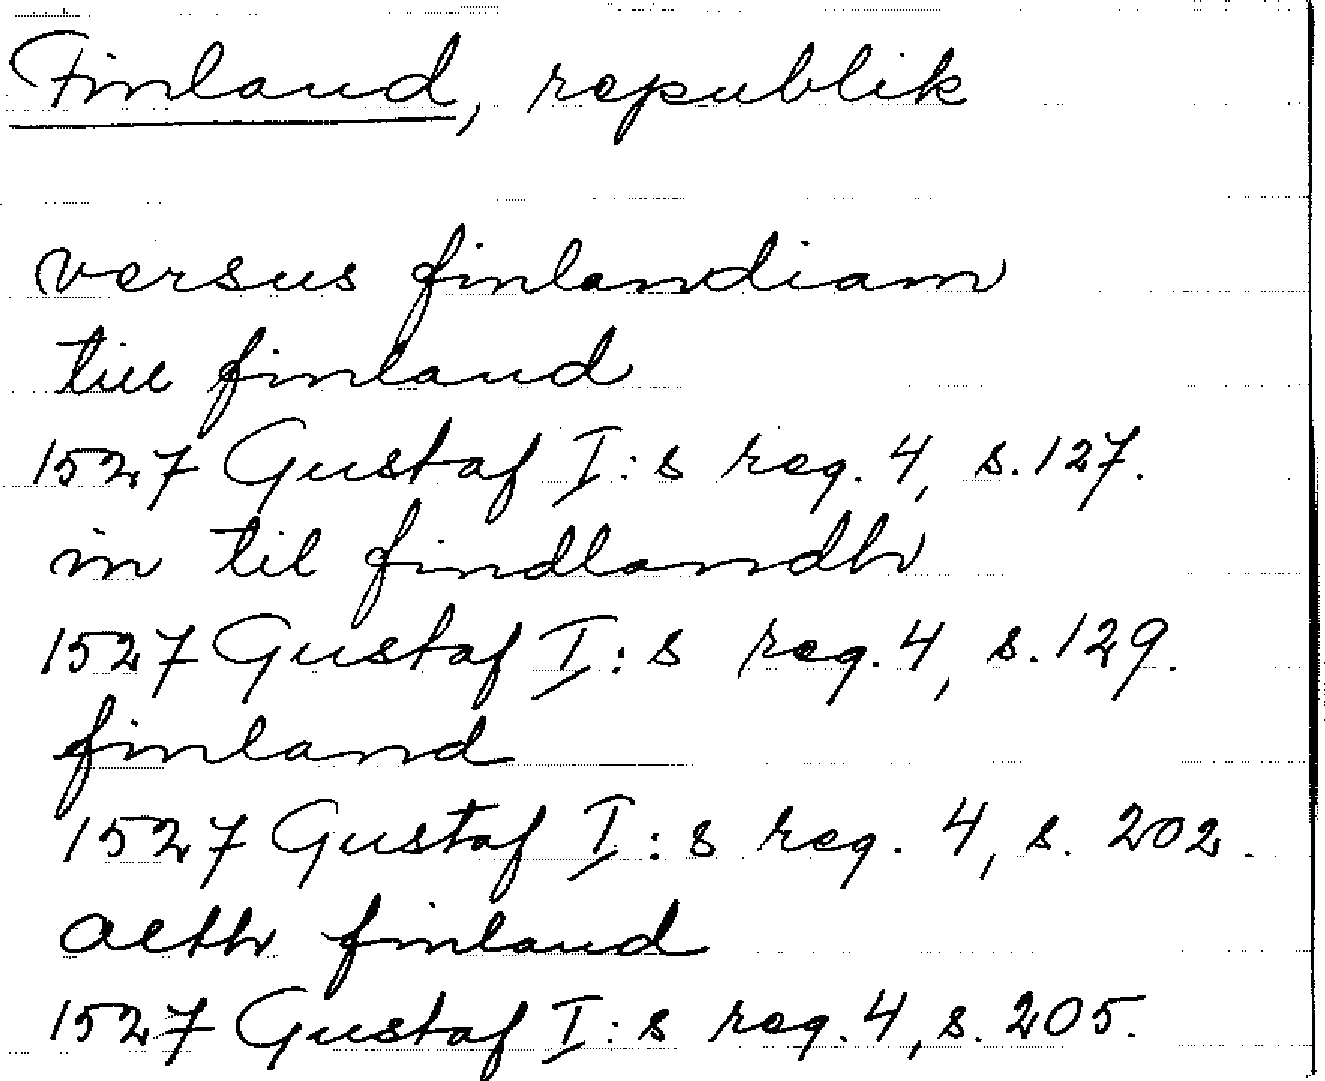 Finland, republik
versus finlandiam
till finland
1527 Gustaf I:s reg. 4, s. 127.
in til findlandh
1527 Gustaf I:s reg. 4, s. 129.
finland
1527 Gustaf I:s reg. 4, s. 202.
alth finland
1527 Gustaf I:s reg. 4, s. 205.